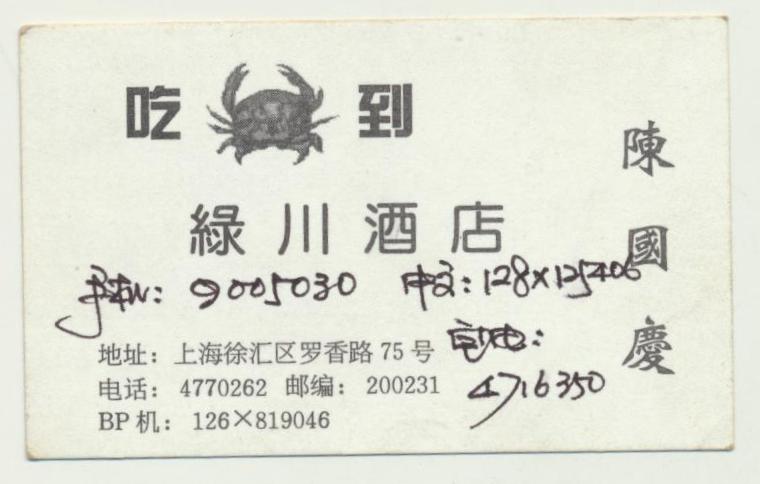 吃 到
陳國慶
綠川酒店
手机: 9005030 中文: 128×125406
地址: 上海徐汇区罗香路 75 号
电话: 4770262 邮编: 200231
4716350
BP 机: 126×819046